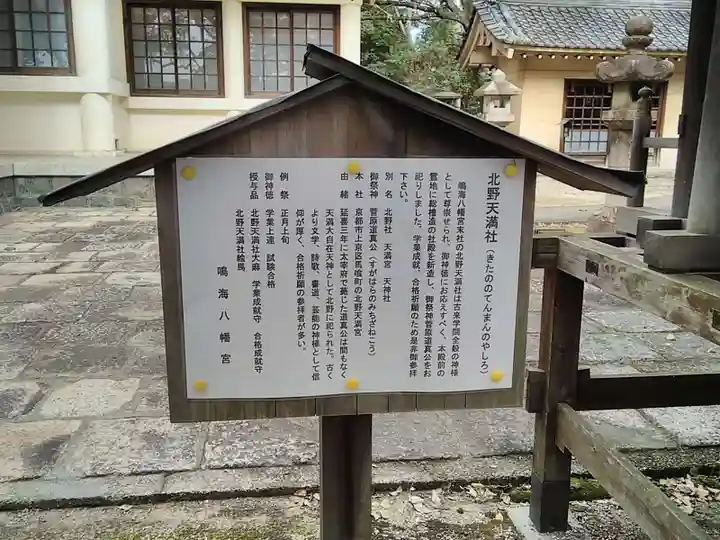 北野天満社(きたののてんまんのやしろ)
鳴海八幡宮末社の北野天満社は古来学問全般の神様
として尊崇せられ、御神徳にお応えすべく、本殿前の
霊地に総檜造の社殿を新造し、御祭神菅原道真公をお
祀りしました。学業成就、合格祈願のため是非御参拝
下さい。
別名 北野社 天満宮 天神社
御祭神 菅原道真公(すがはらのみちざねこう)
本社 京都市上京区馬喰町の北野天満宮
由緒 延喜三年に太宰府で薨じた道真公は間もなく
天満大自在天神として北野に祀られた。古く
より文学、詩歌、書道、芸能の神様として信
仰が厚く、合格祈願の参拝者が多い。
例祭 正月上旬
御神徳 学業上達 試験合格
授与品 北野天満社大麻 学業成就守 合格成就守
北野天満社絵馬
鳴海八幡宮